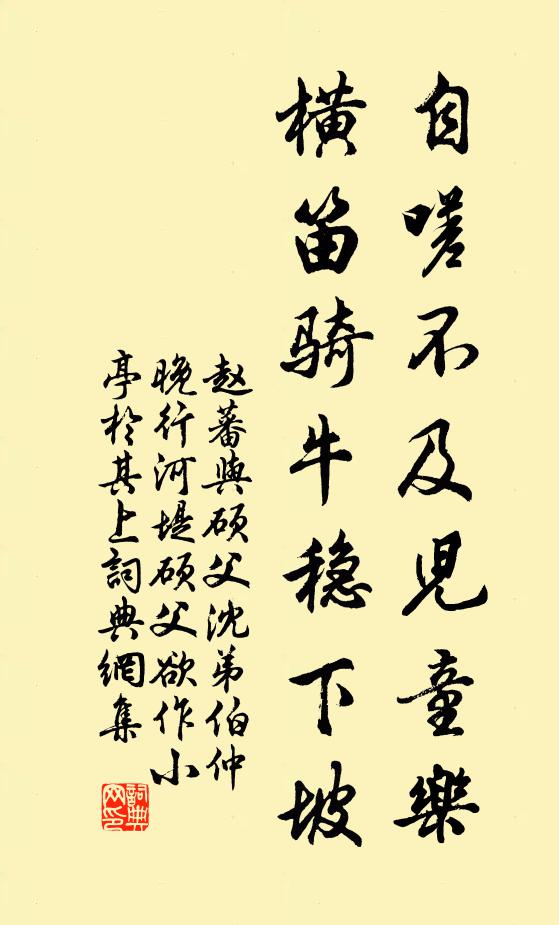 自嗟不及兒童樂
橫笛騎牛稳下坡
赵蕃與硕父沈弟伯仲
晚行河堤硕父欲作小
亭於其上詞典網集
詞典
网印